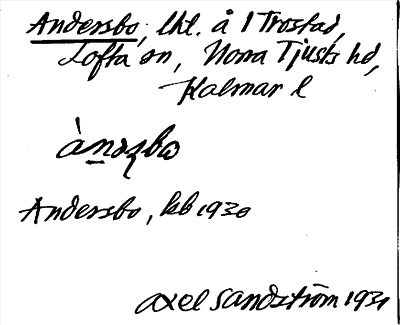 Andersbo, lht. å 1 Trostad,
Lofta sn, Norra Tjusts hd,
Kalmar l
Andersbo, kb 1930
Axel Sandström 1931